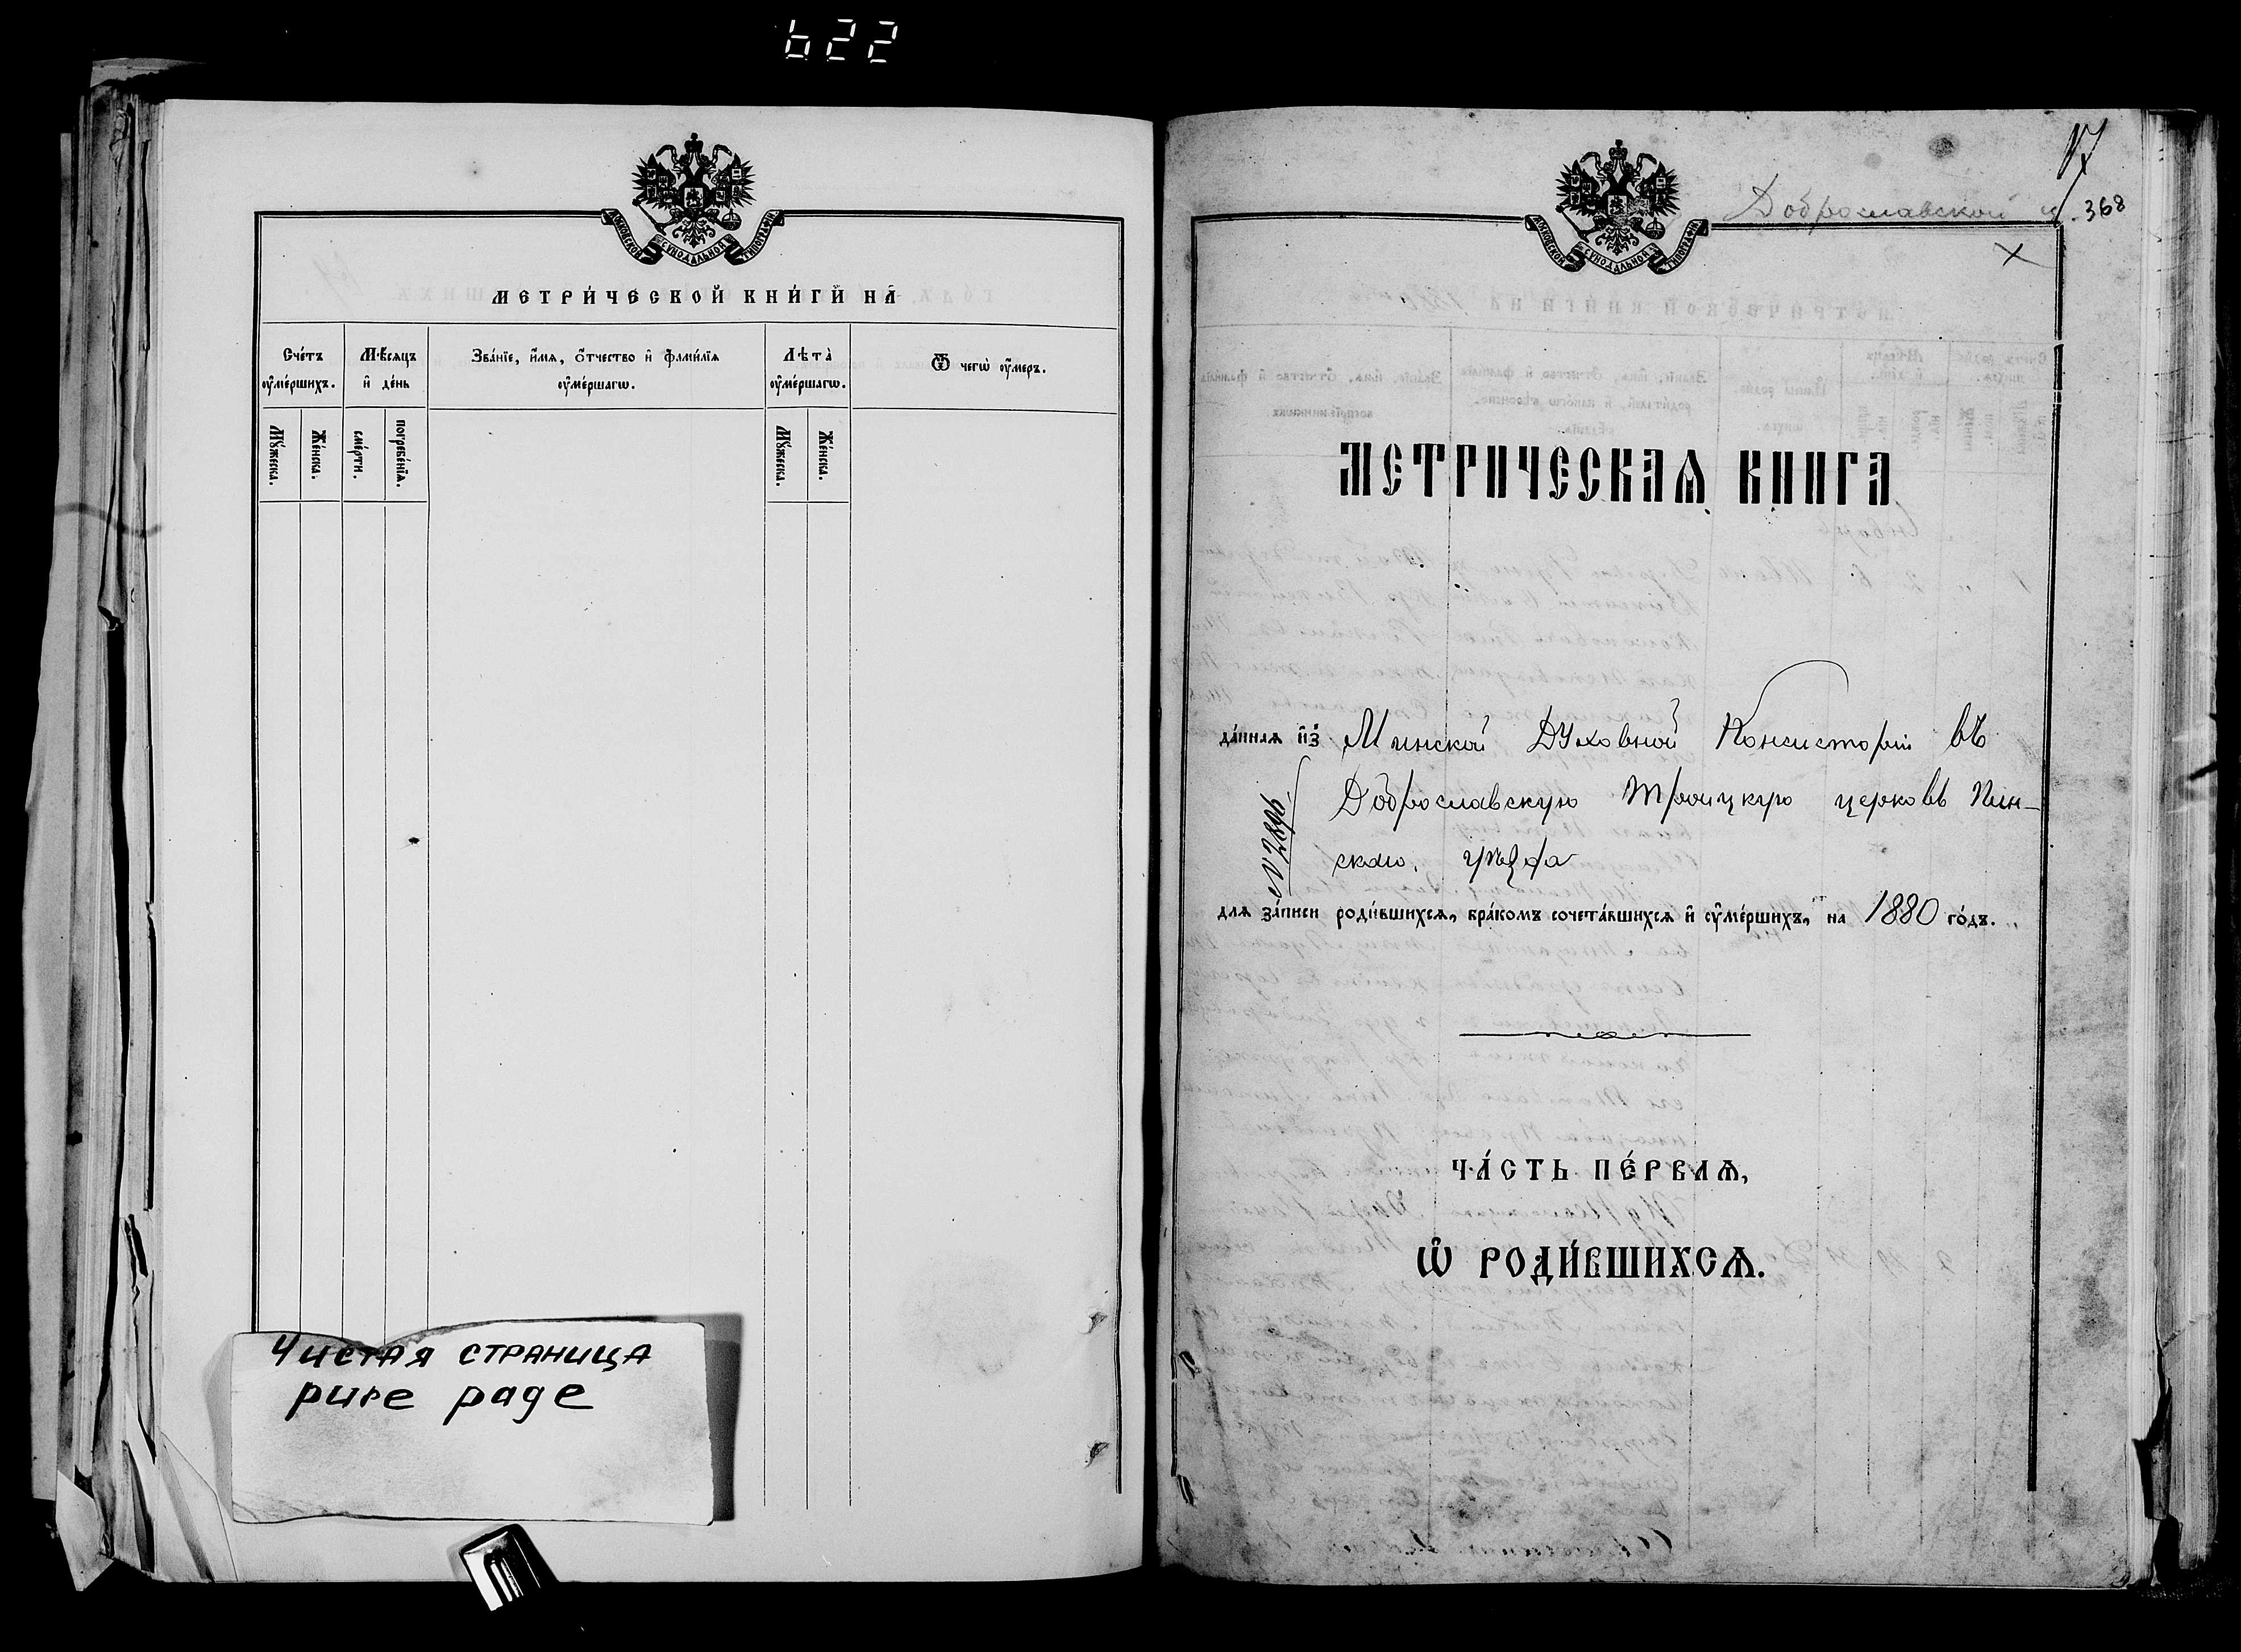 622
МОСКОВСКОЙ СѴНОДАЛЬНОЙ ТИПОГРАФІИ
МЕТРИ́ЧЕСКОЙ КНИ́ГИ НА
Сче́тъ ᲂу҆ме́ршихъ.
Мѣ́сяцъ и҆ де́нь
Зва́нїе, и҆́мя, ѻ҆́тчество и҆ фами́лїя ᲂу҆ме́ршагѡ.
Лѣта̀ ᲂу҆ме́ршагѡ.
Ѿ чегѡ̀ ᲂу҆́меръ.
Мꙋ́жеска.
Же́нска.
сме́рти.
погребе́нїя.
Мꙋ́жеска.
Же́нска.
Чистая страница
pure page
17
Доброславской ц.
368
МОСКОВСКОЙ СѴНОДАЛЬНОЙ ТИПОГРАФІИ
МЕТРИЧЕСКАѦ КНИГА
да́нная и҆з̾ Минской Духовной Консисторіи въ
Доброславскую Троицкую церковь Пин-
скаго уѣзда
№ 2896
для за́писи роди́вшихся, бра́комъ сочета́вшихся и҆ ᲂу҆ме́ршихъ, на 1880 го́дъ.
ЧА́СТЬ ПЕ́РВАѦ,
Ѡ҆ РОДИ́ВШИХСѦ.